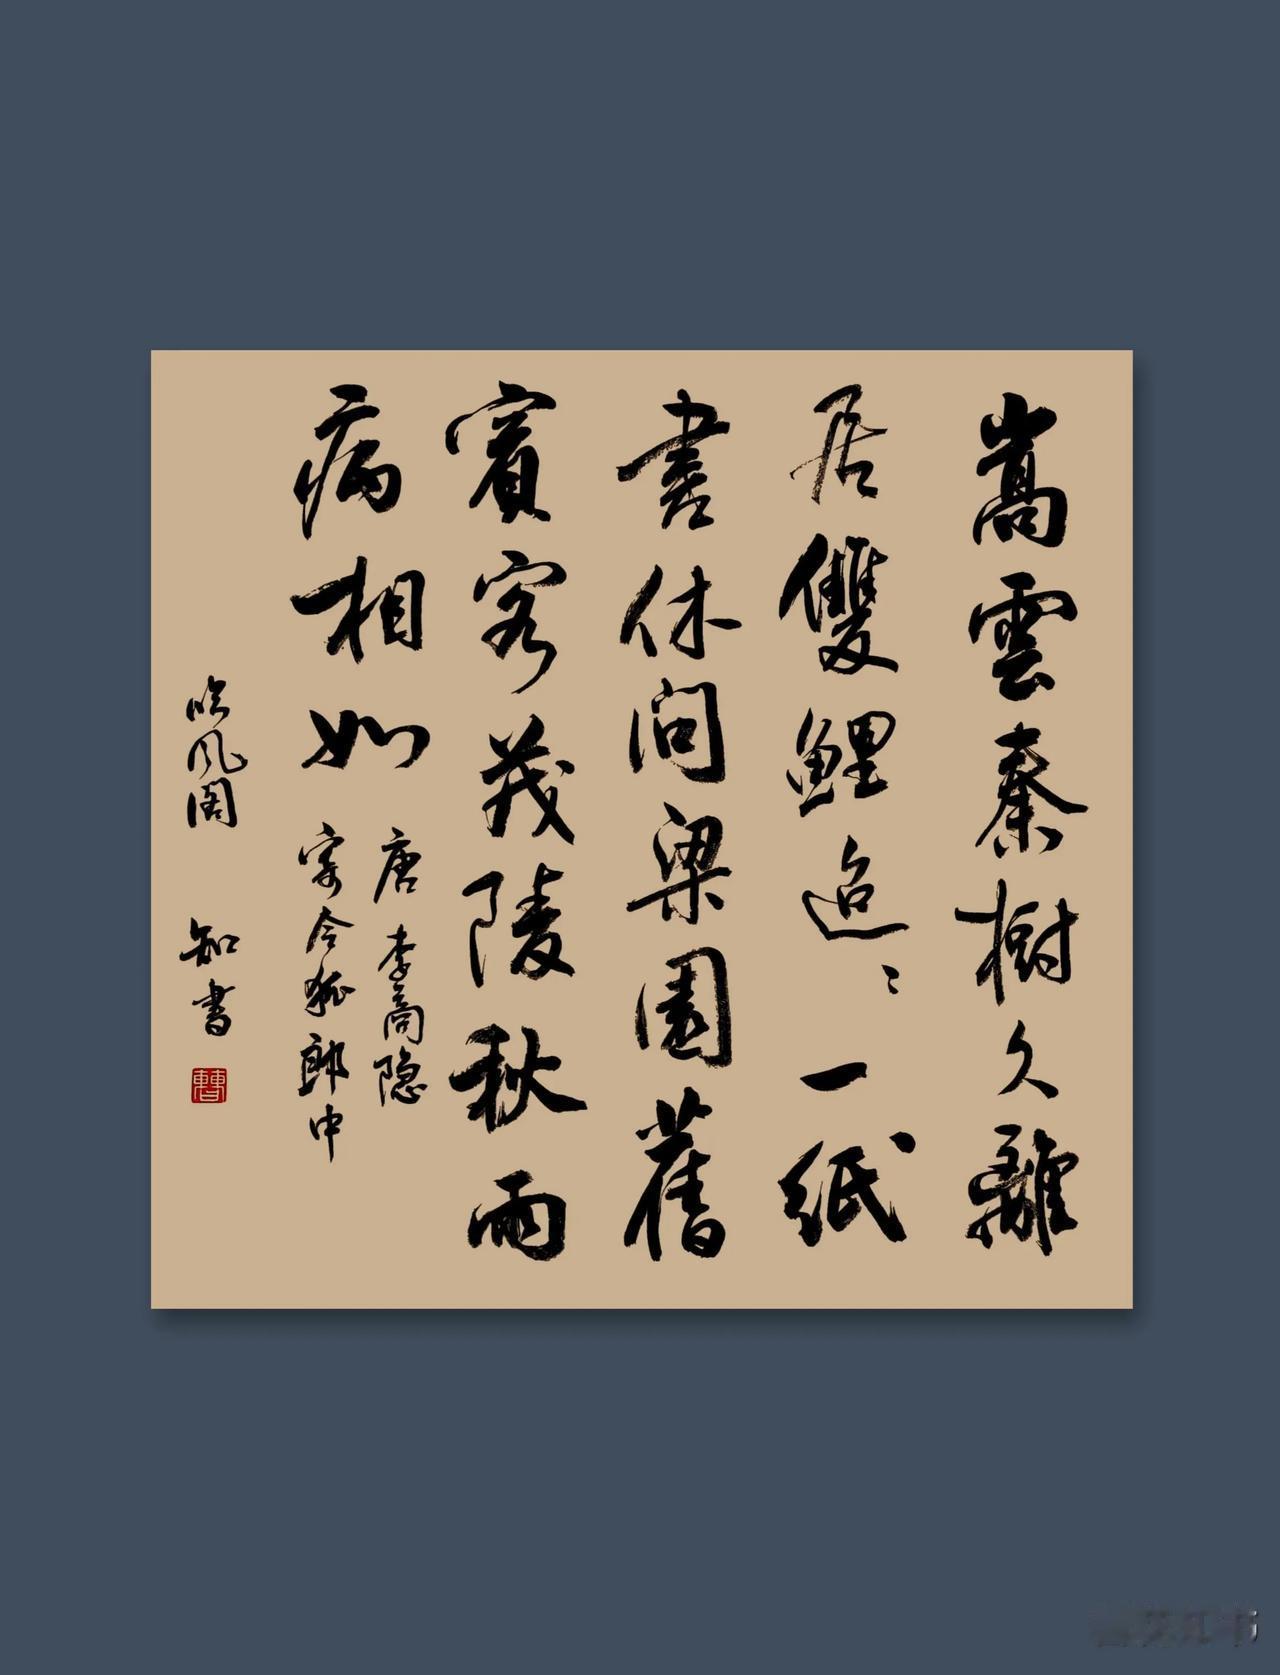 嵩雲秦樹久離
居雙鯉迢〻一紙
書休问梁園舊
賓客茂陵秋雨
病相如
唐 李商隐
寄令狐郎中
吟风阁 知書